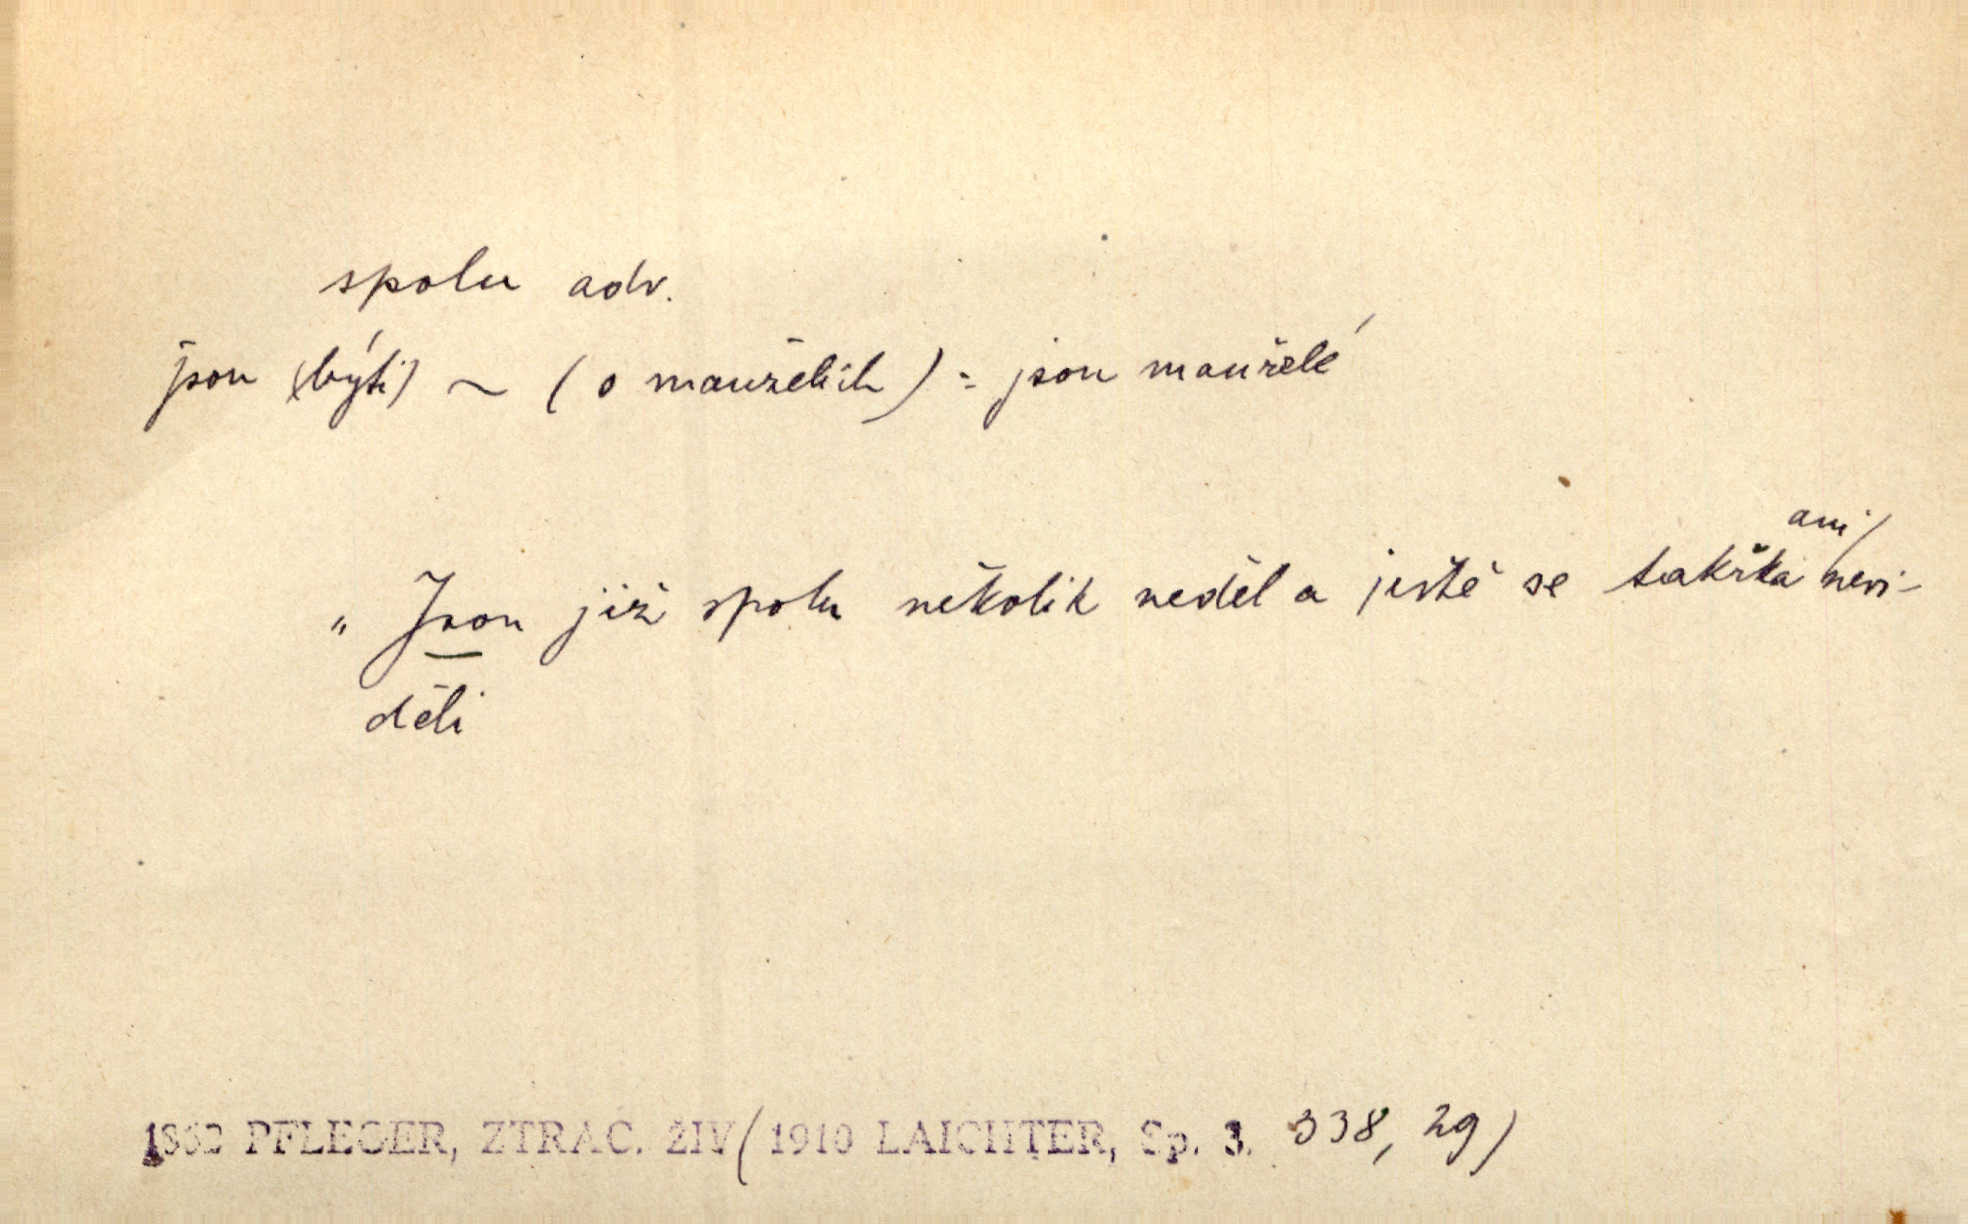 spolu adv.
jsou (býti) ~ (o manželích) = jsou manželé
ani
„ Jsou již spolu několik neděl a ještě se takřka nevi-
děli
1862 PFLEGER, ZTRAC. ŽIV (1910 LAICHTER, Sp. 3. 338, 29)